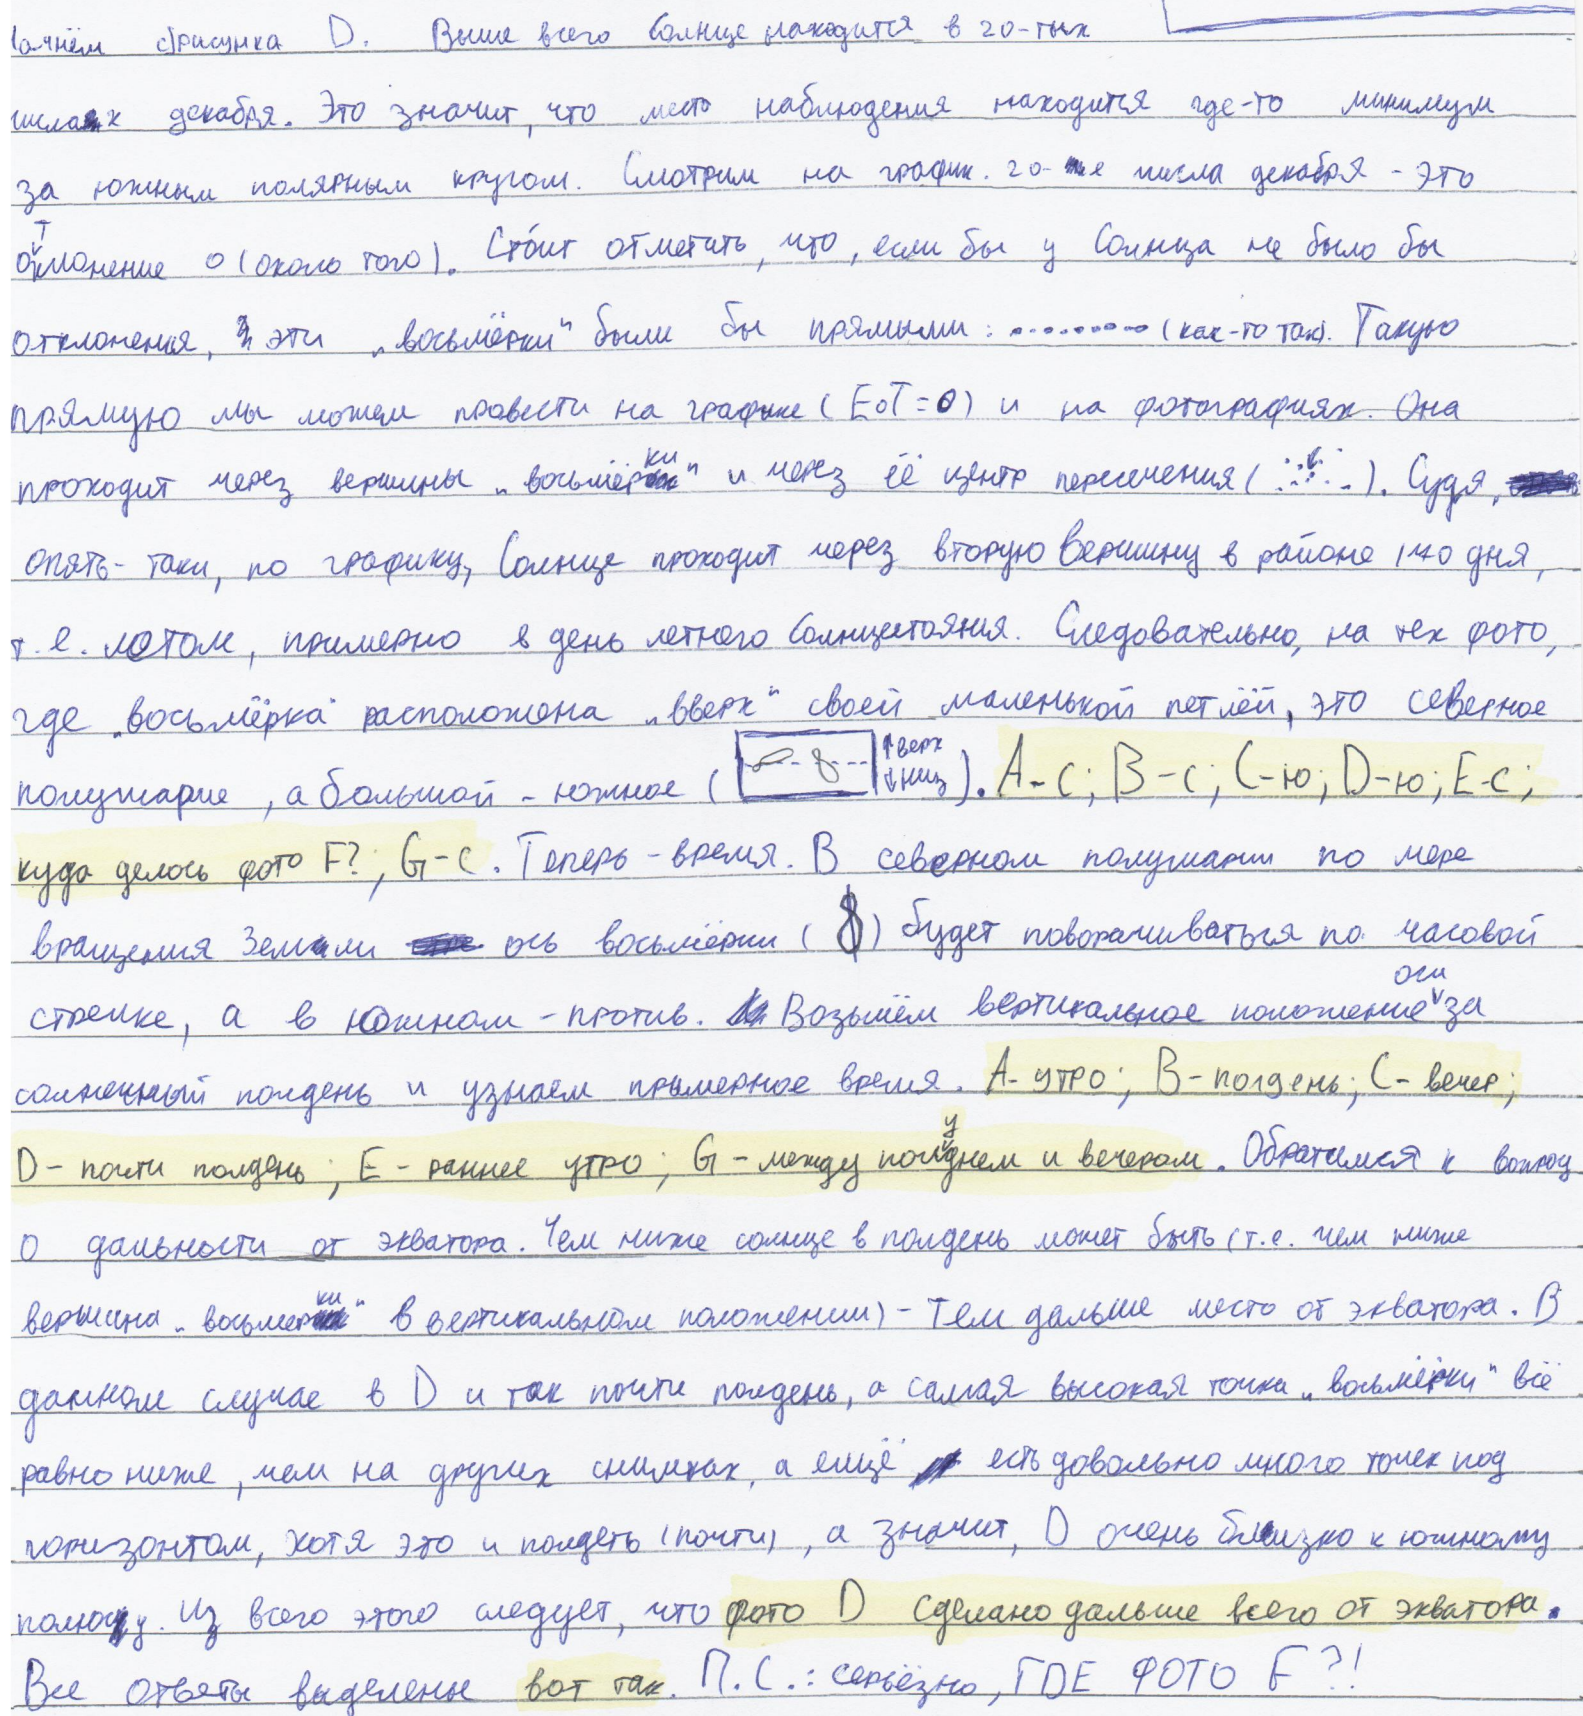 начнём с рисунка D. Выше всего Солнце находится в 20-тых
числах декабря. Это значит, что место наблюдения находится где-то минимум
за южным полярным кругом. Смотрим на график. 20-е числа декабря - это
отклонение 0 (около того). Сто́ит отметить, что, если бы у Солнца не было бы
отклонения, эти „восьмёрки" были бы прямыми: ......... (как-то так). Такую
прямую мы можем провести на графике (EoT=0) и на фотографиях. Она
проходит через вершины „восьмёрки" и через её центр пересечения ( ). Судя,
опять-таки, по графику, Солнце проходит через вторую вершину в районе 170 дня,
т.е. летом, примерно в день летнего солнцестояния. Следовательно, на тех фото,
где „восьмёрка" расположена „вверх" своей маленькой петлёй, это северное
полушарие, а большой - южное ( ↑верх ↓низ ). A-с; B-с; C-ю; D-ю; E-с;
куда делось фото F?; G-с. Теперь - время. В северном полушарии по мере
вращения Земли ось восьмёрки (8) будет поворачиваться по часовой
стрелке, а в южном - против. Возьмём вертикальное положение оси за
солнечный полдень и узнаем примерное время. A-утро; B-полдень; C-вечер;
D-почти полдень; E-раннее утро; G-между полуднем и вечером. Обратимся к вопросу
о дальности от экватора. Чем ниже солнце в полдень может быть (т.е. чем ниже
вершина „восьмёрки" в вертикальном положении) - тем дальше место от экватора. В
данном случае в D и так почти полдень, а самая высокая точка „восьмёрки" всё
равно ниже, чем на других снимках, а ещё есть довольно много точек под
горизонтом, хотя это и полдеть (почти), а значит, D очень близко к южному
полюсу. Из всего этого следует, что фото D сделано дальше всего от экватора.
Все ответы выделены вот так. П.С.: серьёзно, ГДЕ ФОТО F?!